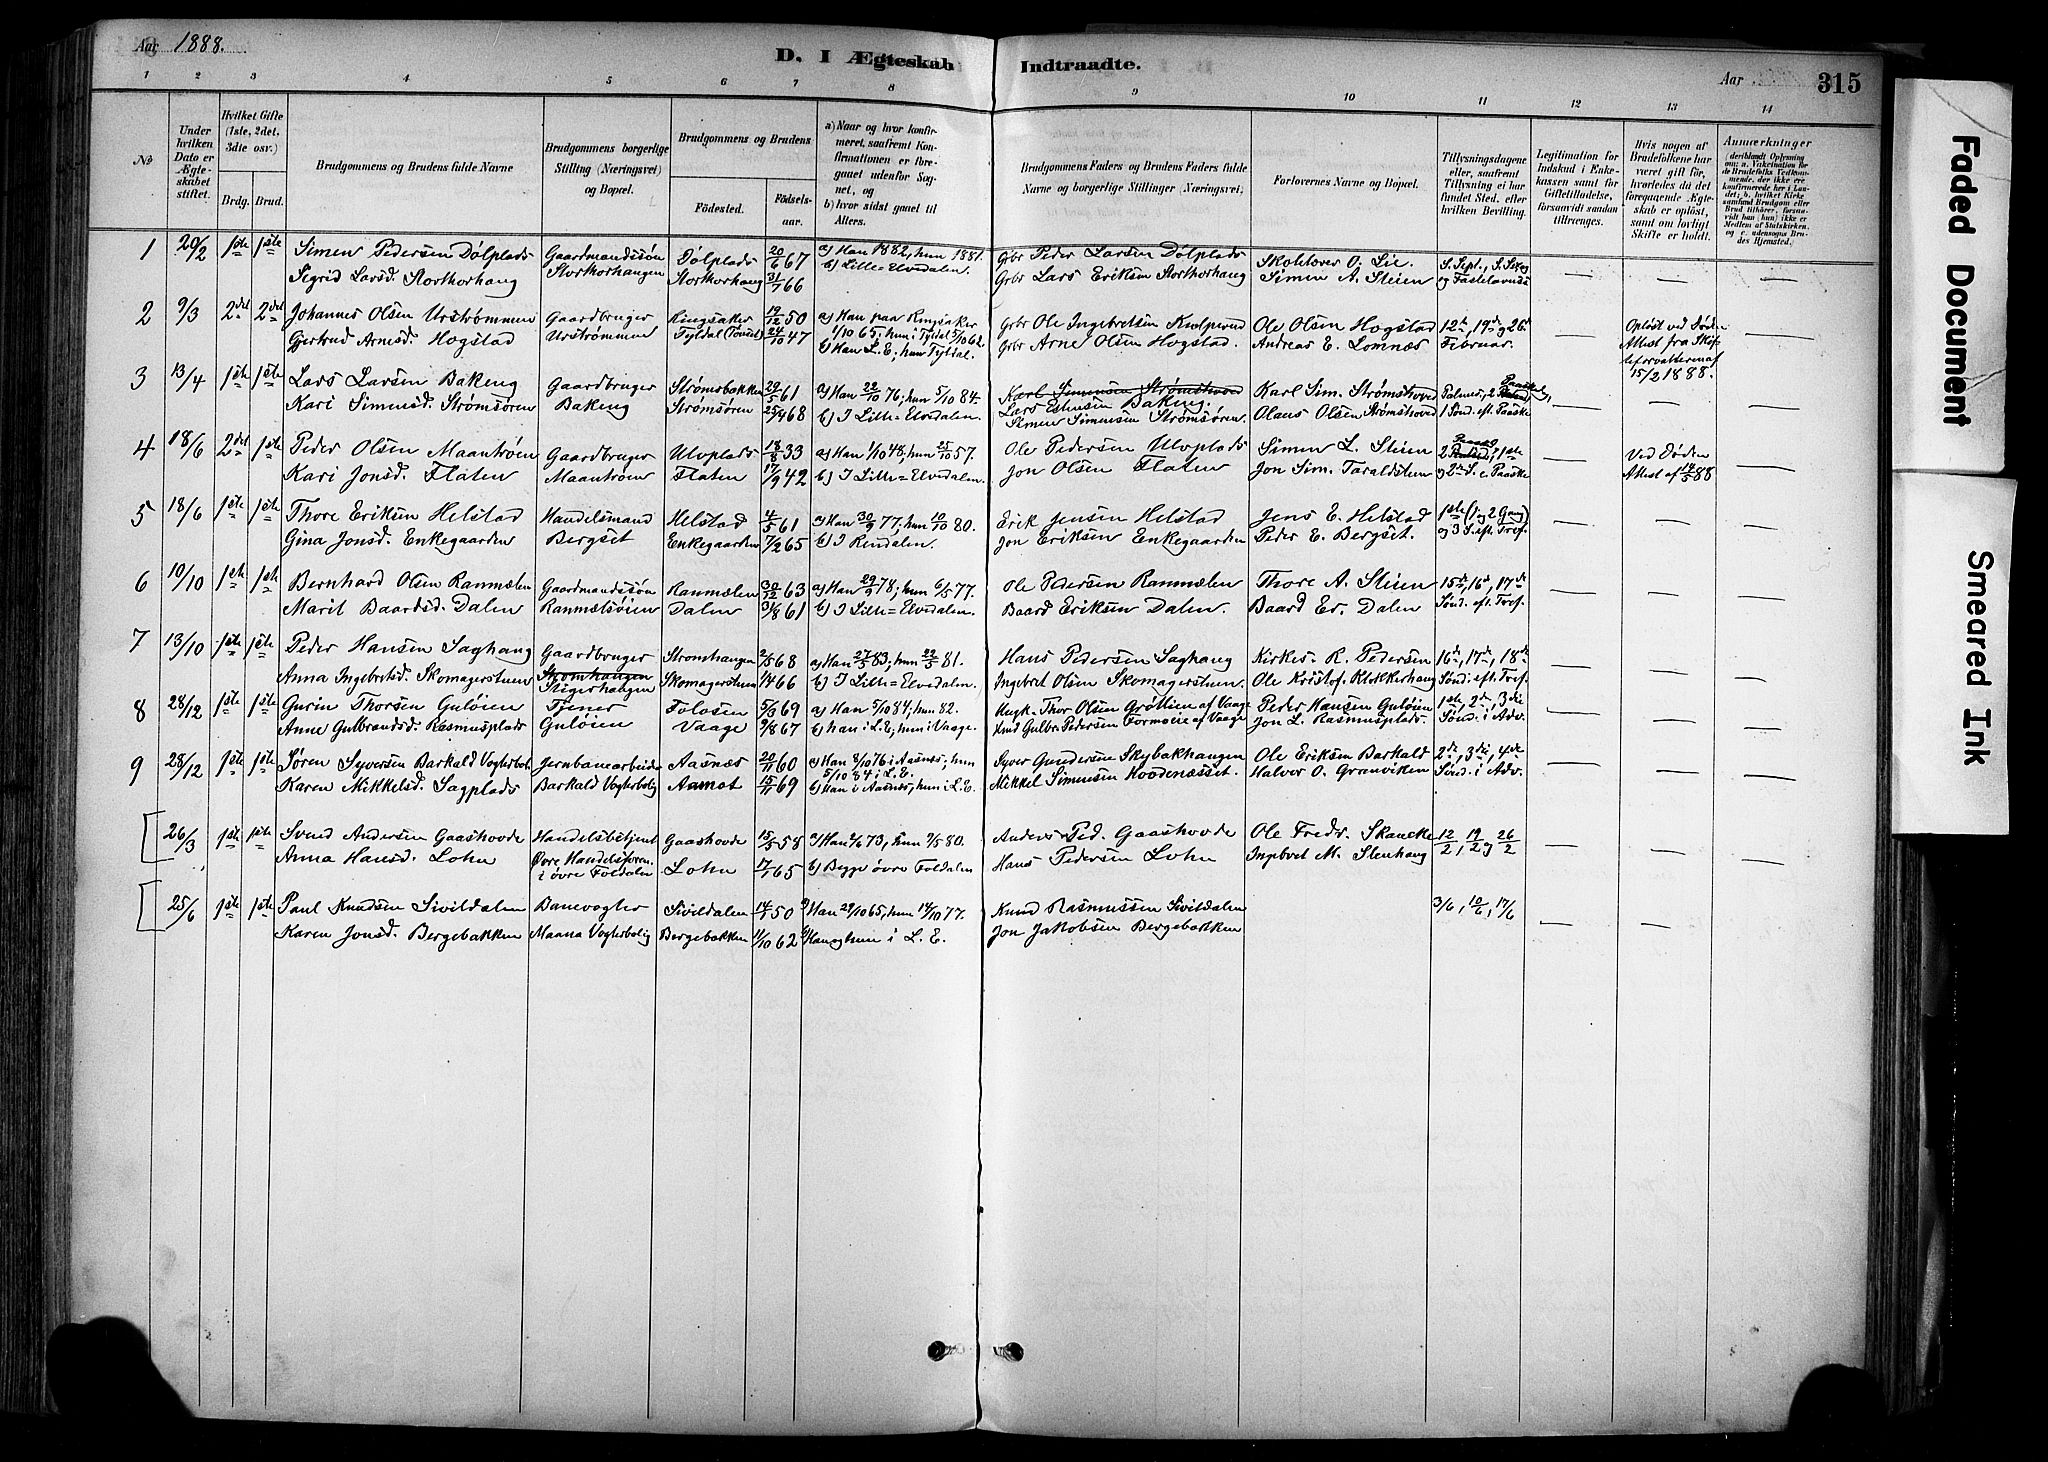 Aar 1888.
D. I Ægteskab Indtraadte.
Aar
315
1 2 3 4 5 6 7 8 9 10 11 12 13 14
No
Under hvilken Dato er Ægteskabet stiftet.
Hvilket Gifte (1ste, 2det, 3die osv.)
Brdg. Brud.
Brudgommens og Brudens fulde Navne
Brudgommens borgerlige Stilling (Næringsvei) og Bopæl.
Brudgommens og Brudens
Fødested.
Fødsels-aar.
a) Naar og hvor konfirmeret, saafremt Konfirmationen er foregaaet udenfor Sognet, og
b) hvor sidst gaaet til Alters.
Brudgommens Faders og Brudens Faders fulde Navne og borgerlige Stillinger (Næringsvei).
Forlovernes Navne og Bopæl.
Tillysningsdagene eller, saafremt Tillysning ei har fundet Sted, efter hvilken Bevilling.
Legitimation for Indskud i Enkekassen samt for Giftetilladelse, forsaavidt saadan tiltrænges.
Hvis nogen af Brudefolkene har været gift før, hvorledes da det foregaaende Ægteskab er opløst, samt om lovligt Skifte er holdt.
Anmærkninger
1 20/2 1ste 1ste Simen Pedersen Dølplads Gaardmandssøn Dølplads 20/6 67 a) Han 1882, hun 1881. Grbr Peder Larsen Dølplads Skolelærer O. Lie. S. Sept., S. Sexag
Sigrid Larsd. Storkorhaug Storkorhaugen Storkorhaug 31/7 66 b) Lille=Elvedalen. Grbr Lars Eriksen Storkorhaug Simen A. Steien og Fastelavnss — — —
2 9/3 2det 2det Johannes Olsen Urstrømmen Gaardbruger Ringsaker 19/12 50 a) Han paa Ringsaker Grbr Ole Ingebretsen Ole Olsen Hogstad 12te, 19de og 26de Opløst ved Død
Gjertrud Arnesd. Hogstad Urstrømmen Tyldal (Tønset) 24/10 47 1/10 65; hun i Tyldal 5/10 62. Grbr Arne Olsen Hogstad. Andreas E. Lomnæs Februar. — Attest fra Skifteforvalteren af —
b) Han L. E; hun Tyldal. 15/2 1888.
3 13/4 1ste 1ste Lars Larsen Bakeng Gaardbruger Strømsbakken 29/5 61 a) Han 22/10 76; hun 5/10 84. Karl Simensen Strømshoved Karl Sim. Strømshoved Palmes, 2 Paaske
Kari Simensd. Strømsøren Bakeng Strømsøren 25/4 68 b) I Lille=Elvedalen. Lars Estensen Bakeng. Olaus Olsen Strømshoved 1 Sønd. eft. Paaske — — —
Simen Simensen Strømsøren.
4 18/6 2det 1ste Peder Olsen Maantrøen Gaardbruger Ulvplads 18/8 33 a) Han 1/10 48; hun 25/10 57. Ole Pedersen Ulvplads Simen L. Steien 2 Paaske, 1ste Ved Døden
Kari Jonsd. Flaten Maantrøen Flaten 17/9 42 b) I Lille=Elvedalen. Jon Olsen Flaten Jon Sim. Taraldsteen og 2den S. e. Paaske — Attest af 14/5 88 —
5 18/6 1ste 1ste Thore Eriksen Helstad Handelsmand Helstad 4/5 61 a) Han 30/9 77; hun 10/10 80. Erik Jensen Helstad Jens E. Helstad 1ste (1 og 2 Gang)
Gina Jonsd. Enkegaarden Bergset Enkegaarden 7/2 65 b) I Rendalen. Jon Eriksen Enkegaarden Peder E. Bergset. og 3 S. eft. Tref. — — —
6 10/10 1ste 1ste Bernhard Olsen Ranmælen Gaardmandssøn Ranmælen 30/12 63 a) Han 29/9 78; hun 6/5 77. Ole Pedersen Ranmælen Thore A. Steien 15de, 16de, 17de
Marit Baardsd. Dalen Ranmælsøien Dalen 31/8 61 b) I Lille=Elvedalen. Baard Eriksen Dalen Baard Er. Dalen Sønd. eft. Tref. — — —
7 13/10 1ste 1ste Peder Hansen Saghaug Gaardbruger Stromhaugen 2/5 68 a) Han 27/5 83; hun 22/5 81. Hans Pedersen Saghaug Kirkes. R. Pedersen 16de, 17de, 18de
Anna Ingebretsd. Skomagerstuen Stromhaugen Stigerhaugen Skomagerstuen 1/4 66 b) I Lille=Elvedalen. Ingebret Olsen Skomagerstuen. Ole Kristof. Klokkerhaug Sønd. eft. Tref. — — —
8 28/12 1ste 1ste Gurin Thorsen Guløien Tjener Folosen 5/3 69 a) Han 5/10 84; hun 82. Ungk. Thor Olsen Grøtlien af Vaage Peder Hansen Guløien 1ste, 2den, 3die
Anne Gulbrandsd. Rasmusplads Guløien Vaage 9/8 67 b) han i L. E; hun i Vaage. Knud Gulbr. Pedersen Formoeie af Vaage Jon L. Rasmusplads. Sønd. i Adv. — — —
9 28/12 1ste 1ste Søren Syversen Barkald Vogterbolig Jernbanearbeider Aasnes 20/11 60 a) Han 8/10 76 i Aasnes; hun Syver Gundersen Skybakhaugen Ole Eriksen Barkald 2den, 3die, 4de
Karen Mikkelsd. Sagplads Barkald Vogterbolig Aamot 15/11 69 5/10 84 i L. E. Mikkel Simensen Hoodenæsset. Halvor O. Granviken Sønd. i Adv. — — —
b) Han i Aasnes, hun i L. E.
26/3 1ste 1ste Svend Andersen Gaashovde Handelsbetjent Gaashovde 15/5 58 a) Han 2/6 73, hun 9/5 80. Anders Ped. Gaashovde Ole Fredr. Skancke 12/2, 19/2 og 26/2
Anna Hansd. Lohn Øvre Handelsforen. i øvre Foldalen Lohn 17/1 65 b) Begge øvre Foldalen Hans Pedersen Lohn Ingebret M. Stenhaug — — —
25/6 1ste 1ste Paul Knudsen Sivildalen Banevogter Sivildalen 14/5 50 a) Han 29/10 65, hun 14/10 77. Knud Rasmussen Sivildalen 3/6, 10/6, 17/6
Karen Jonsd. Bergebakken Maana Vogterbolig Bergebakken 11/10 62 b) Han og hun i L. E. Jon Jakobsen Bergebakken — —
Faded Document
Smeared Ink